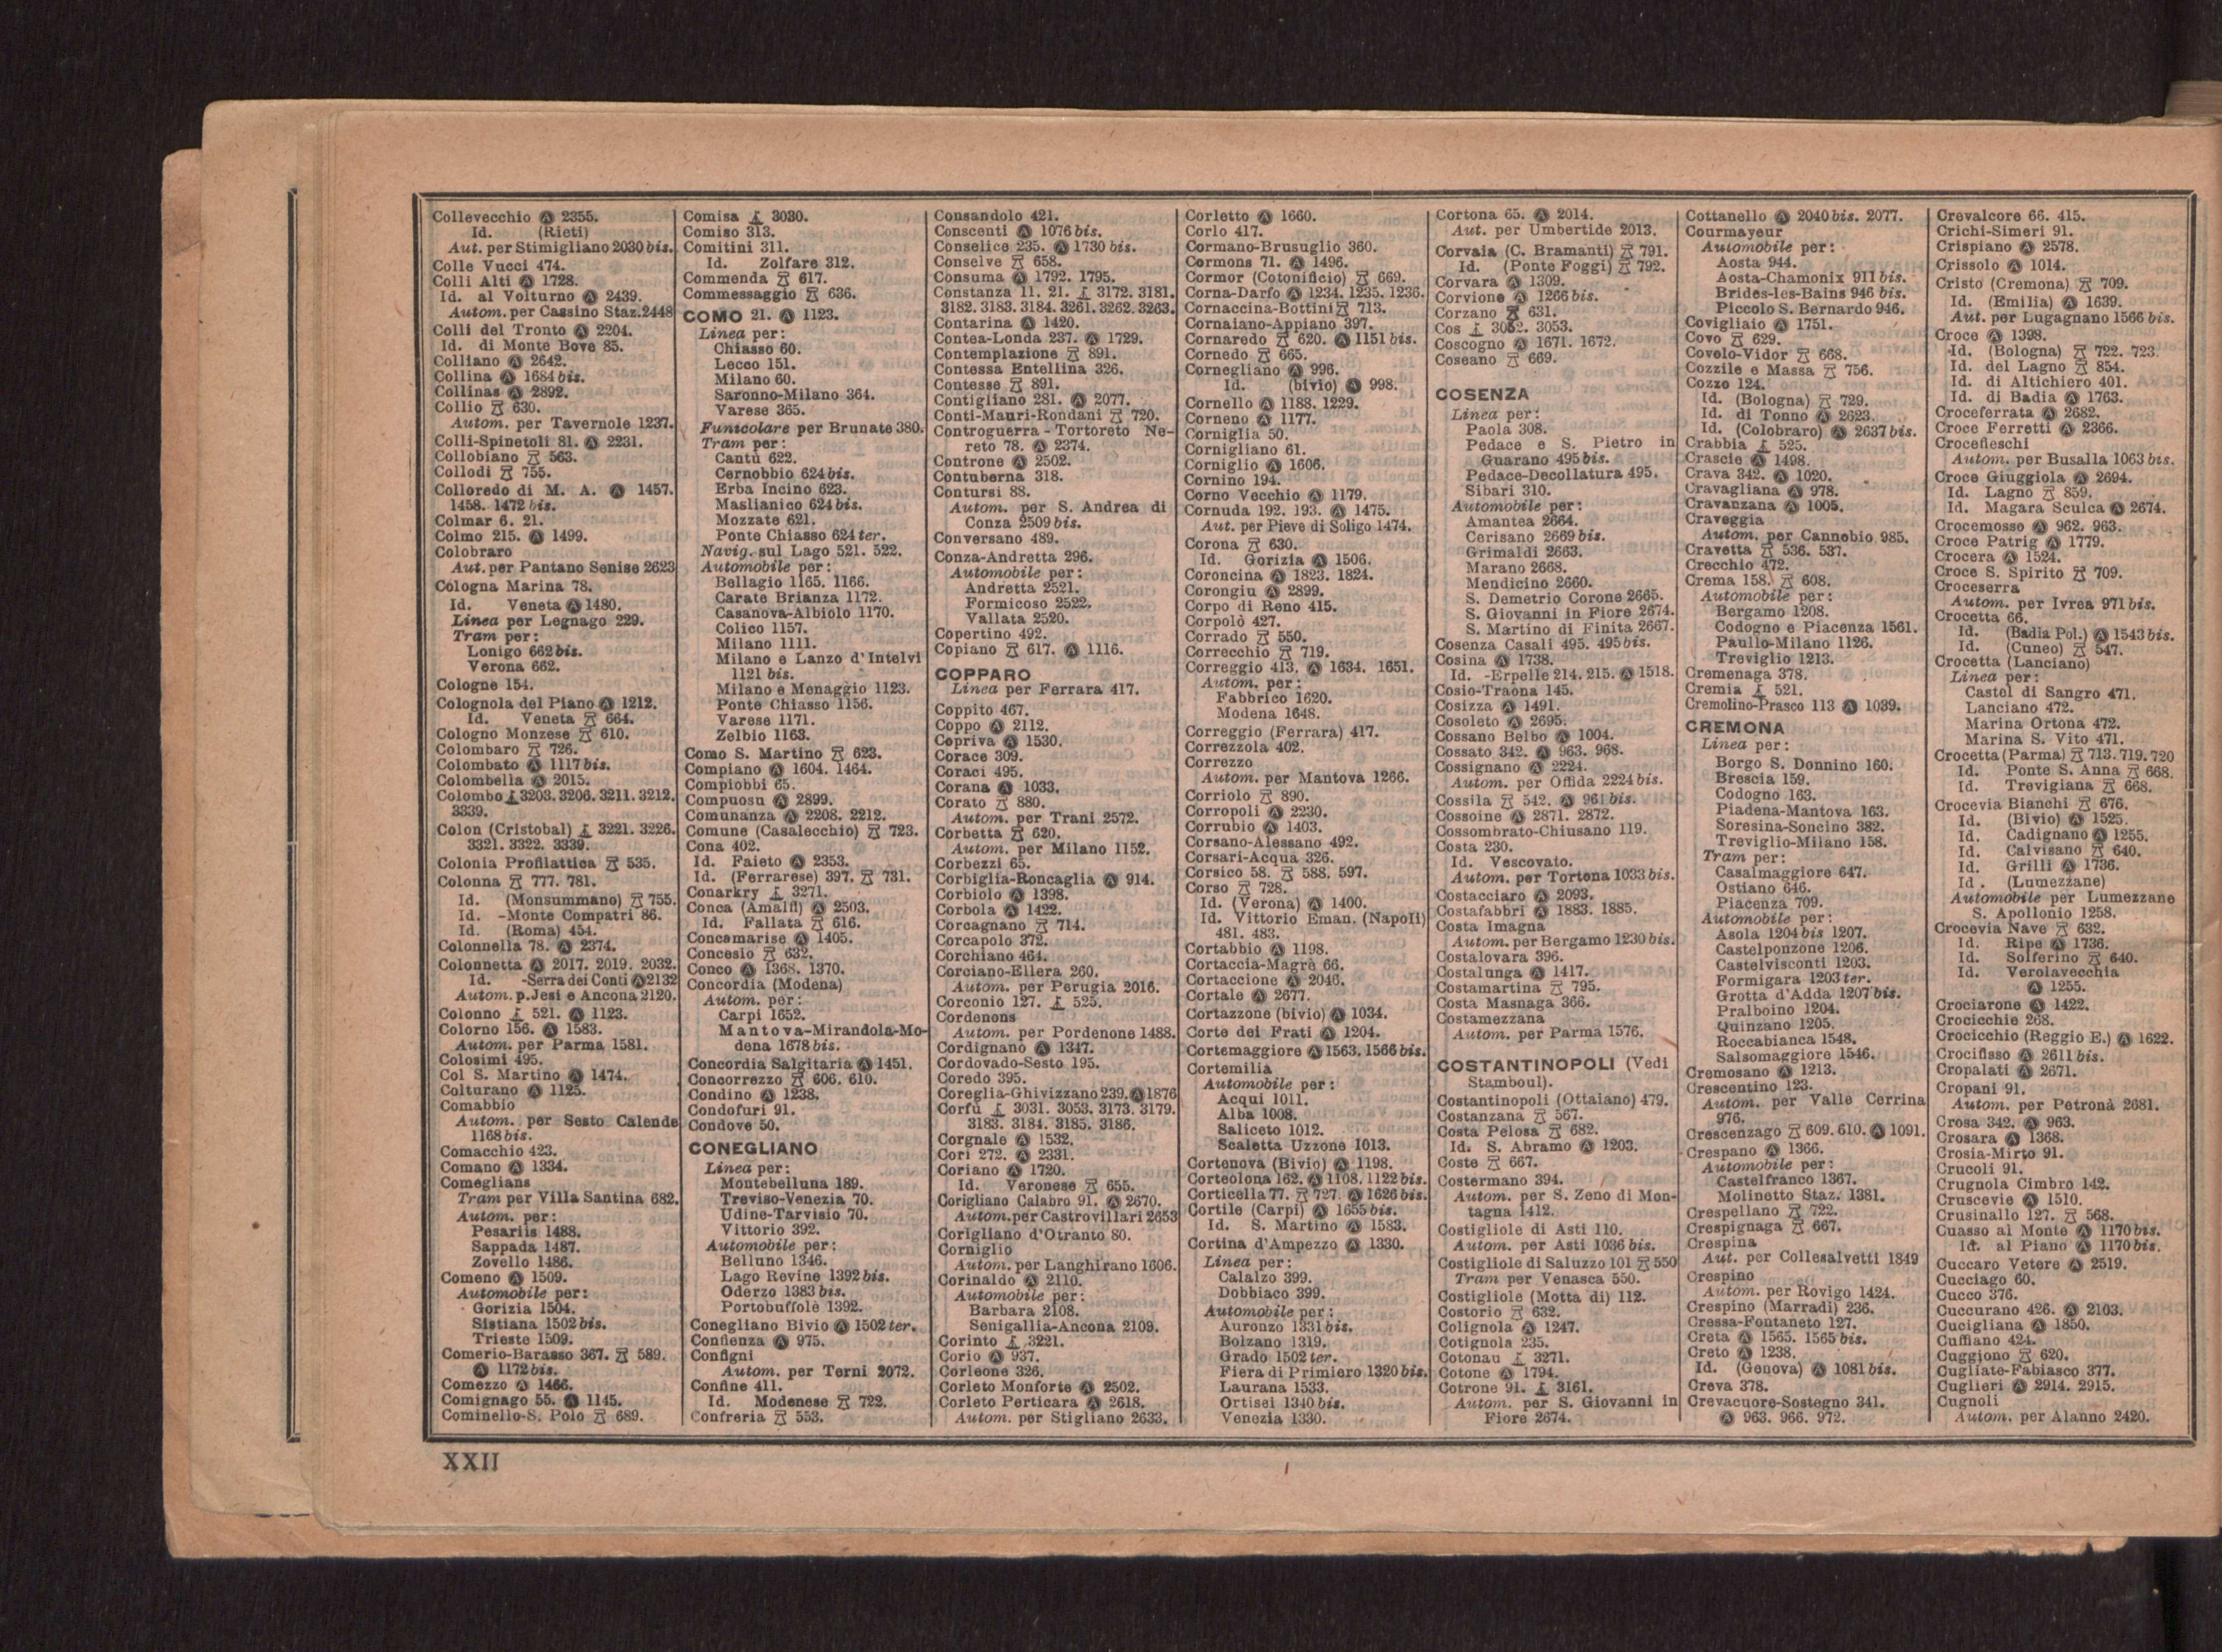 Collevecchio Ⓐ 2355.
Id. (Rieti)
Aut. per Stimigliano 2030 bis.
Colle Vucci 474.
Colli Alti Ⓐ 1728.
Id. al Volturno Ⓐ 2439.
Autom. per Cassino Staz. 2448
Colli del Tronto Ⓐ 2204.
Id. di Monte Bove 85.
Colliano Ⓐ 2642.
Collina Ⓐ 1684 bis.
Collinas Ⓐ 2892.
Collio 630.
Autom. per Tavernole 1237.
Colli-Spinetoli 81. Ⓐ 2231.
Collobiano 563.
Collodi 755.
Colloredo di M. A. Ⓐ 1457.
1458. 1472 bis.
Colmar 6. 21.
Colmo 215. Ⓐ 1499.
Colobraro
Aut. per Pantano Senise 2623
Cologna Marina 78.
Id. Veneta Ⓐ 1480.
Linea per Legnago 229.
Tram per:
Lonigo 662 bis.
Verona 662.
Cologne 154.
Colognola del Piano Ⓐ 1212.
Id. Veneta 664.
Cologno Monzese 610.
Colombaro 726.
Colombato Ⓐ 1117 bis.
Colombella Ⓐ 2015.
Colombo 3203. 3206. 3211. 3212.
3339.
Colon (Cristobal) 3221. 3226.
3321. 3322. 3339.
Colonia Profilattica 535.
Colonna 777. 781.
Id. (Monsummano) 755.
Id. -Monte Compatri 86.
Id. (Roma) 454.
Colonnella 78. Ⓐ 2374.
Colonnetta Ⓐ 2017. 2019. 2032.
Id. -Serra dei Conti Ⓐ 2132
Autom. p. Jesi e Ancona 2120.
Colonno 521. Ⓐ 1123.
Colorno 156. Ⓐ 1583.
Autom. per Parma 1581.
Colosimi 495.
Col S. Martino Ⓐ 1474.
Colturano Ⓐ 1125.
Comabbio
Autom. per Sesto Calende
1168 bis.
Comacchio 423.
Comano Ⓐ 1334.
Comeglians
Tram per Villa Santina 682.
Autom. per:
Pesariis 1488.
Sappada 1487.
Zovello 1486.
Comeno Ⓐ 1509.
Automobile per:
Gorizia 1504.
Sistiana 1502 bis.
Trieste 1509.
Comerio-Barasso 367. 589.
Ⓐ 1172 bis.
Comezzo Ⓐ 1466.
Comignago 55. Ⓐ 1145.
Cominello-S. Polo 689.
Comisa 3030.
Comiso 313.
Comitini 311.
Id. Zolfare 312.
Commenda 617.
Commessaggio 636.
COMO 21. Ⓐ 1123.
Linea per:
Chiasso 60.
Lecco 151.
Milano 60.
Saronno-Milano 364.
Varese 365.
Funicolare per Brunate 380.
Tram per:
Cantù 622.
Cernobbio 624 bis.
Erba Incino 623.
Maslianico 624 bis.
Mozzate 621.
Ponte Chiasso 624 ter.
Navig. sul Lago 521. 522.
Automobile per:
Bellagio 1165. 1166.
Carate Brianza 1172.
Casanova-Albiolo 1170.
Colico 1157.
Milano 1111.
Milano e Lanzo d'Intelvi
1121 bis.
Milano e Menaggio 1123.
Ponte Chiasso 1156.
Varese 1171.
Zelbio 1163.
Como S. Martino 623.
Compiano Ⓐ 1604. 1464.
Compiobbi 65.
Compuosu Ⓐ 2899.
Comunanza Ⓐ 2208. 2212.
Comune (Casalecchio) 723.
Cona 402.
Id. Faieto Ⓐ 2353.
Id. (Ferrarese) 397. 731.
Conarkry 3271.
Conca (Amalfi) Ⓐ 2503.
Id. Fallata 616.
Concamarise Ⓐ 1405.
Concesio 632.
Conco Ⓐ 1368. 1370.
Concordia (Modena)
Autom. per:
Carpi 1652.
Mantova-Mirandola-Mo-
dena 1678 bis.
Concordia Salgitaria Ⓐ 1451.
Concorrezzo 606. 610.
Condino Ⓐ 1238.
Condofuri 91.
Condove 50.
CONEGLIANO
Linea per:
Montebelluna 189.
Treviso-Venezia 70.
Udine-Tarvisio 70.
Vittorio 392.
Automobile per:
Belluno 1346.
Lago Revine 1392 bis.
Oderzo 1383 bis.
Portobuffolè 1392.
Conegliano Bivio Ⓐ 1502 ter.
Confienza Ⓐ 975.
Configni
Autom. per Terni 2072.
Confine 411.
Id. Modenese 722.
Confreria 553.
Consandolo 421.
Conscenti Ⓐ 1076 bis.
Conselice 235. Ⓐ 1730 bis.
Conselve 658.
Consuma Ⓐ 1792. 1795.
Constanza 11. 21. 3172. 3181.
3182. 3183. 3184. 3261. 3262. 3263.
Contarina Ⓐ 1420.
Contea-Londa 237. Ⓐ 1729.
Contemplazione 891.
Contessa Entellina 326.
Contesse 891.
Contigliano 281. Ⓐ 2077.
Conti-Mauri-Rondani 720.
Controguerra - Tortoreto Ne-
reto 78. Ⓐ 2374.
Controne Ⓐ 2502.
Contuberna 318.
Contursi 88.
Autom. per S. Andrea di
Conza 2509 bis.
Conversano 489.
Conza-Andretta 296.
Automobile per:
Andretta 2521.
Formicoso 2522.
Vallata 2520.
Copertino 492.
Copiano 617. Ⓐ 1116.
COPPARO
Linea per Ferrara 417.
Coppito 467.
Coppo Ⓐ 2112.
Copriva Ⓐ 1530.
Corace 309.
Coraci 495.
Corana Ⓐ 1033.
Corato 880.
Autom. per Trani 2572.
Corbetta 620.
Autom. per Milano 1152.
Corbezzi 65.
Corbiglia-Roncaglia Ⓐ 914.
Corbiolo Ⓐ 1398.
Corbola Ⓐ 1422.
Corcagnano 714.
Corcapolo 372.
Corchiano 464.
Corciano-Ellera 260.
Autom. per Perugia 2016.
Corconio 127. 525.
Cordenons
Autom. per Pordenone 1488.
Cordignano Ⓐ 1347.
Cordovado-Sesto 195.
Coredo 395.
Coreglia-Ghivizzano 239. Ⓐ 1876
Corfù 3031. 3053. 3173. 3179.
3183. 3184. 3185. 3186.
Corgnale Ⓐ 1532.
Cori 272. Ⓐ 2331.
Coriano Ⓐ 1720.
Id. Veronese 655.
Corigliano Calabro 91. Ⓐ 2670.
Autom. per Castrovillari 2653
Corigliano d'Otranto 80.
Corniglio
Autom. per Langhirano 1606.
Corinaldo Ⓐ 2110.
Automobile per:
Barbara 2108.
Senigallia-Ancona 2109.
Corinto 3221.
Corio Ⓐ 937.
Corleone 326.
Corleto Monforte Ⓐ 2502.
Corleto Perticara Ⓐ 2618.
Autom. per Stigliano 2633.
Corletto Ⓐ 1660.
Corlo 417.
Cormano-Brusuglio 360.
Cormons 71. Ⓐ 1496.
Cormor (Cotonificio) 669.
Corna-Darfo Ⓐ 1234. 1235. 1236.
Cornaccina-Bottini 713.
Cornaiano-Appiano 397.
Cornaredo 620. Ⓐ 1151 bis.
Cornedo 665.
Cornegliano Ⓐ 996.
Id. (bivio) Ⓐ 998.
Cornello Ⓐ 1188. 1229.
Corneno Ⓐ 1177.
Corniglia 50.
Cornigliano 61.
Corniglio Ⓐ 1606.
Cornino 194.
Corno Vecchio Ⓐ 1179.
Cornuda 192. 193. Ⓐ 1475.
Aut. per Pieve di Soligo 1474.
Corona 630.
Id. Gorizia Ⓐ 1506.
Coroncina Ⓐ 1823. 1824.
Corongiu Ⓐ 2899.
Corpo di Reno 415.
Corpolò 427.
Corrado 550.
Correcchio 719.
Correggio 413. Ⓐ 1634. 1651.
Autom. per:
Fabbrico 1620.
Modena 1648.
Correggio (Ferrara) 417.
Correzzola 402.
Correzzo
Autom. per Mantova 1266.
Corriolo 890.
Corropoli Ⓐ 2230.
Corrubio Ⓐ 1403.
Corsano-Alessano 492.
Corsari-Acqua 326.
Corsico 58. 588. 597.
Corso 728.
Id. (Verona) Ⓐ 1400.
Id. Vittorio Eman. (Napoli)
481. 483.
Cortabbio Ⓐ 1198.
Cortaccia-Magrè 66.
Cortaccione Ⓐ 2046.
Cortale Ⓐ 2677.
Cortazzone (bivio) Ⓐ 1034.
Corte dei Frati Ⓐ 1204.
Cortemaggiore Ⓐ 1563. 1566 bis.
Cortemilia
Automobile per:
Acqui 1011.
Alba 1008.
Saliceto 1012.
Scaletta Uzzone 1013.
Cortenova (Bivio) Ⓐ 1198.
Corteolona 162. Ⓐ 1108. 1122 bis.
Corticella 77. 727. Ⓐ 1626 bis.
Cortile (Carpi) Ⓐ 1655 bis.
Id. S. Martino Ⓐ 1583.
Cortina d'Ampezzo Ⓐ 1330.
Linea per:
Calalzo 399.
Dobbiaco 399.
Automobile per:
Auronzo 1331 bis.
Bolzano 1319.
Grado 1502 ter.
Fiera di Primiero 1320 bis.
Laurana 1533.
Ortisei 1340 bis.
Venezia 1330.
Cortona 65. Ⓐ 2014.
Aut. per Umbertide 2013.
Corvaia (C. Bramanti) 791.
Id. (Ponte Foggi) 792.
Corvara Ⓐ 1309.
Corvione Ⓐ 1266 bis.
Corzano 631.
Cos 3052. 3053.
Coscogno Ⓐ 1671. 1672.
Coseano 669.
COSENZA
Linea per:
Paola 308.
Pedace e S. Pietro in
Guarano 495 bis.
Pedace-Decollatura 495.
Sibari 310.
Automobile per:
Amantea 2664.
Cerisano 2669 bis.
Grimaldi 2663.
Marano 2668.
Mendicino 2660.
S. Demetrio Corone 2665.
S. Giovanni in Fiore 2674.
S. Martino di Finita 2667.
Cosenza Casali 495. 495 bis.
Cosina Ⓐ 1738.
Id. -Erpelle 214. 215. Ⓐ 1518.
Cosio-Traona 145.
Cosizza Ⓐ 1491.
Cosoleto Ⓐ 2695.
Cossano Belbo Ⓐ 1004.
Cossato 342. Ⓐ 963. 968.
Cossignano Ⓐ 2224.
Autom. per Offida 2224 bis.
Cossila 542. Ⓐ 961 bis.
Cossoine Ⓐ 2871. 2872.
Cossombrato-Chiusano 119.
Costa 230.
Id. Vescovato.
Autom. per Tortona 1033 bis.
Costacciaro Ⓐ 2093.
Costafabbri Ⓐ 1883. 1885.
Costa Imagna
Autom. per Bergamo 1230 bis.
Costalovara 396.
Costalunga Ⓐ 1417.
Costamartina 795.
Costa Masnaga 366.
Costamezzana
Autom. per Parma 1576.
COSTANTINOPOLI (Vedi
Stamboul).
Costantinopoli (Ottaiano) 479.
Costanzana 567.
Costa Pelosa 682.
Id. S. Abramo Ⓐ 1203.
Coste 667.
Costermano 394.
Autom. per S. Zeno di Mon-
tagna 1412.
Costigliole di Asti 110.
Autom. per Asti 1036 bis.
Costigliole di Saluzzo 101 550
Tram per Venasca 550.
Costigliole (Motta di) 112.
Costorio 632.
Colignola Ⓐ 1247.
Cotignola 235.
Cotonau 3271.
Cotone Ⓐ 1794.
Cotrone 91. 3161.
Autom. per S. Giovanni in
Fiore 2674.
Cottanello Ⓐ 2040 bis. 2077.
Courmayeur
Automobile per:
Aosta 944.
Aosta-Chamonix 911 bis.
Brides-les-Bains 946 bis.
Piccolo S. Bernardo 946.
Covigliaio Ⓐ 1751.
Covo 629.
Covolo-Vidor 668.
Cozzile e Massa 756.
Cozzo 124.
Id. (Bologna) 729.
Id. di Tonno Ⓐ 2623.
Id. (Colobraro) Ⓐ 2637 bis.
Crabbia 525.
Crascie Ⓐ 1498.
Crava 342. Ⓐ 1020.
Cravagliana Ⓐ 978.
Cravanzana Ⓐ 1005.
Craveggia
Autom. per Cannobio 985.
Cravetta 536. 537.
Crecchio 472.
Crema 158. 608.
Automobile per:
Bergamo 1208.
Codogno e Piacenza 1561.
Paullo-Milano 1126.
Treviglio 1213.
Cremenaga 378.
Cremia 521.
Cremolino-Prasco 113 Ⓐ 1039.
CREMONA
Linea per:
Borgo S. Donnino 160.
Brescia 159.
Codogno 163.
Piadena-Mantova 163.
Soresina-Soncino 382.
Treviglio-Milano 158.
Tram per:
Casalmaggiore 647.
Ostiano 646.
Piacenza 709.
Automobile per:
Asola 1204 bis 1207.
Castelponzone 1206.
Castelvisconti 1203.
Formigara 1203 ter.
Grotta d'Adda 1207 bis.
Pralboino 1204.
Quinzano 1205.
Roccabianca 1548.
Salsomaggiore 1546.
Cremosano Ⓐ 1213.
Crescentino 123.
Autom. per Valle Cerrina
976.
Crescenzago 609. 610. Ⓐ 1091.
Crespano Ⓐ 1366.
Automobile per:
Castelfranco 1367.
Molinetto Staz. 1381.
Crespellano 722.
Crespignaga 667.
Crespina
Aut. per Collesalvetti 1849
Crespino
Autom. per Rovigo 1424.
Crespino (Marradi) 236.
Cressa-Fontaneto 127.
Creta Ⓐ 1565. 1565 bis.
Creto Ⓐ 1238.
Id. (Genova) Ⓐ 1081 bis.
Creva 378.
Crevacuore-Sostegno 341.
Ⓐ 963. 966. 972.
Crevalcore 66. 415.
Crichi-Simeri 91.
Crispiano Ⓐ 2578.
Crissolo Ⓐ 1014.
Cristo (Cremona) 709.
Id. (Emilia) Ⓐ 1639.
Aut. per Lugagnano 1566 bis.
Croce Ⓐ 1398.
Id. (Bologna) 722. 723.
Id. del Lagno 854.
Id. di Altichiero 401.
Id. di Badia Ⓐ 1763.
Croceferrata Ⓐ 2682.
Croce Ferretti Ⓐ 2366.
Crocefieschi
Autom. per Busalla 1063 bis.
Croce Giuggiola Ⓐ 2694.
Id. Lagno 859.
Id. Magara Sculca Ⓐ 2674.
Crocemosso Ⓐ 962. 963.
Croce Patrig Ⓐ 1779.
Crocera Ⓐ 1524.
Croce S. Spirito 709.
Croceserra
Autom. per Ivrea 971 bis.
Crocetta 66.
Id. (Badia Pol.) Ⓐ 1543 bis.
Id. (Cuneo) 547.
Crocetta (Lanciano)
Linea per:
Castel di Sangro 471.
Lanciano 472.
Marina Ortona 472.
Marina S. Vito 471.
Crocetta (Parma) 713. 719. 720
Id. Ponte S. Anna 668.
Id. Trevigiana 668.
Crocevia Bianchi 676.
Id. (Bivio) Ⓐ 1525.
Id. Cadignano Ⓐ 1255.
Id. Calvisano 640.
Id. Grilli Ⓐ 1736.
Id. (Lumezzane)
Automobile per Lumezzane
S. Apollonio 1258.
Crocevia Nave 632.
Id. Ripe Ⓐ 1736.
Id. Solferino 640.
Id. Verolavecchia
Ⓐ 1255.
Crociarone Ⓐ 1422.
Crocicchie 268.
Crocicchio (Reggio E.) Ⓐ 1622.
Crocifisso Ⓐ 2611 bis.
Cropalati Ⓐ 2671.
Cropani 91.
Autom. per Petronà 2681.
Crosa 342. Ⓐ 963.
Crosara Ⓐ 1368.
Crosia-Mirto 91.
Crucoli 91.
Crugnola Cimbro 142.
Cruscevie Ⓐ 1510.
Crusinallo 127. 568.
Cuasso al Monte Ⓐ 1170 bis.
Id. al Piano Ⓐ 1170 bis.
Cuccaro Vetere Ⓐ 2519.
Cucciago 60.
Cucco 376.
Cuccurano 426. Ⓐ 2103.
Cucigliana Ⓐ 1850.
Cuffiano 424.
Cuggiono 620.
Cugliate-Fabiasco 377.
Cuglieri Ⓐ 2914. 2915.
Cugnoli
Autom. per Alanno 2420.
XXII